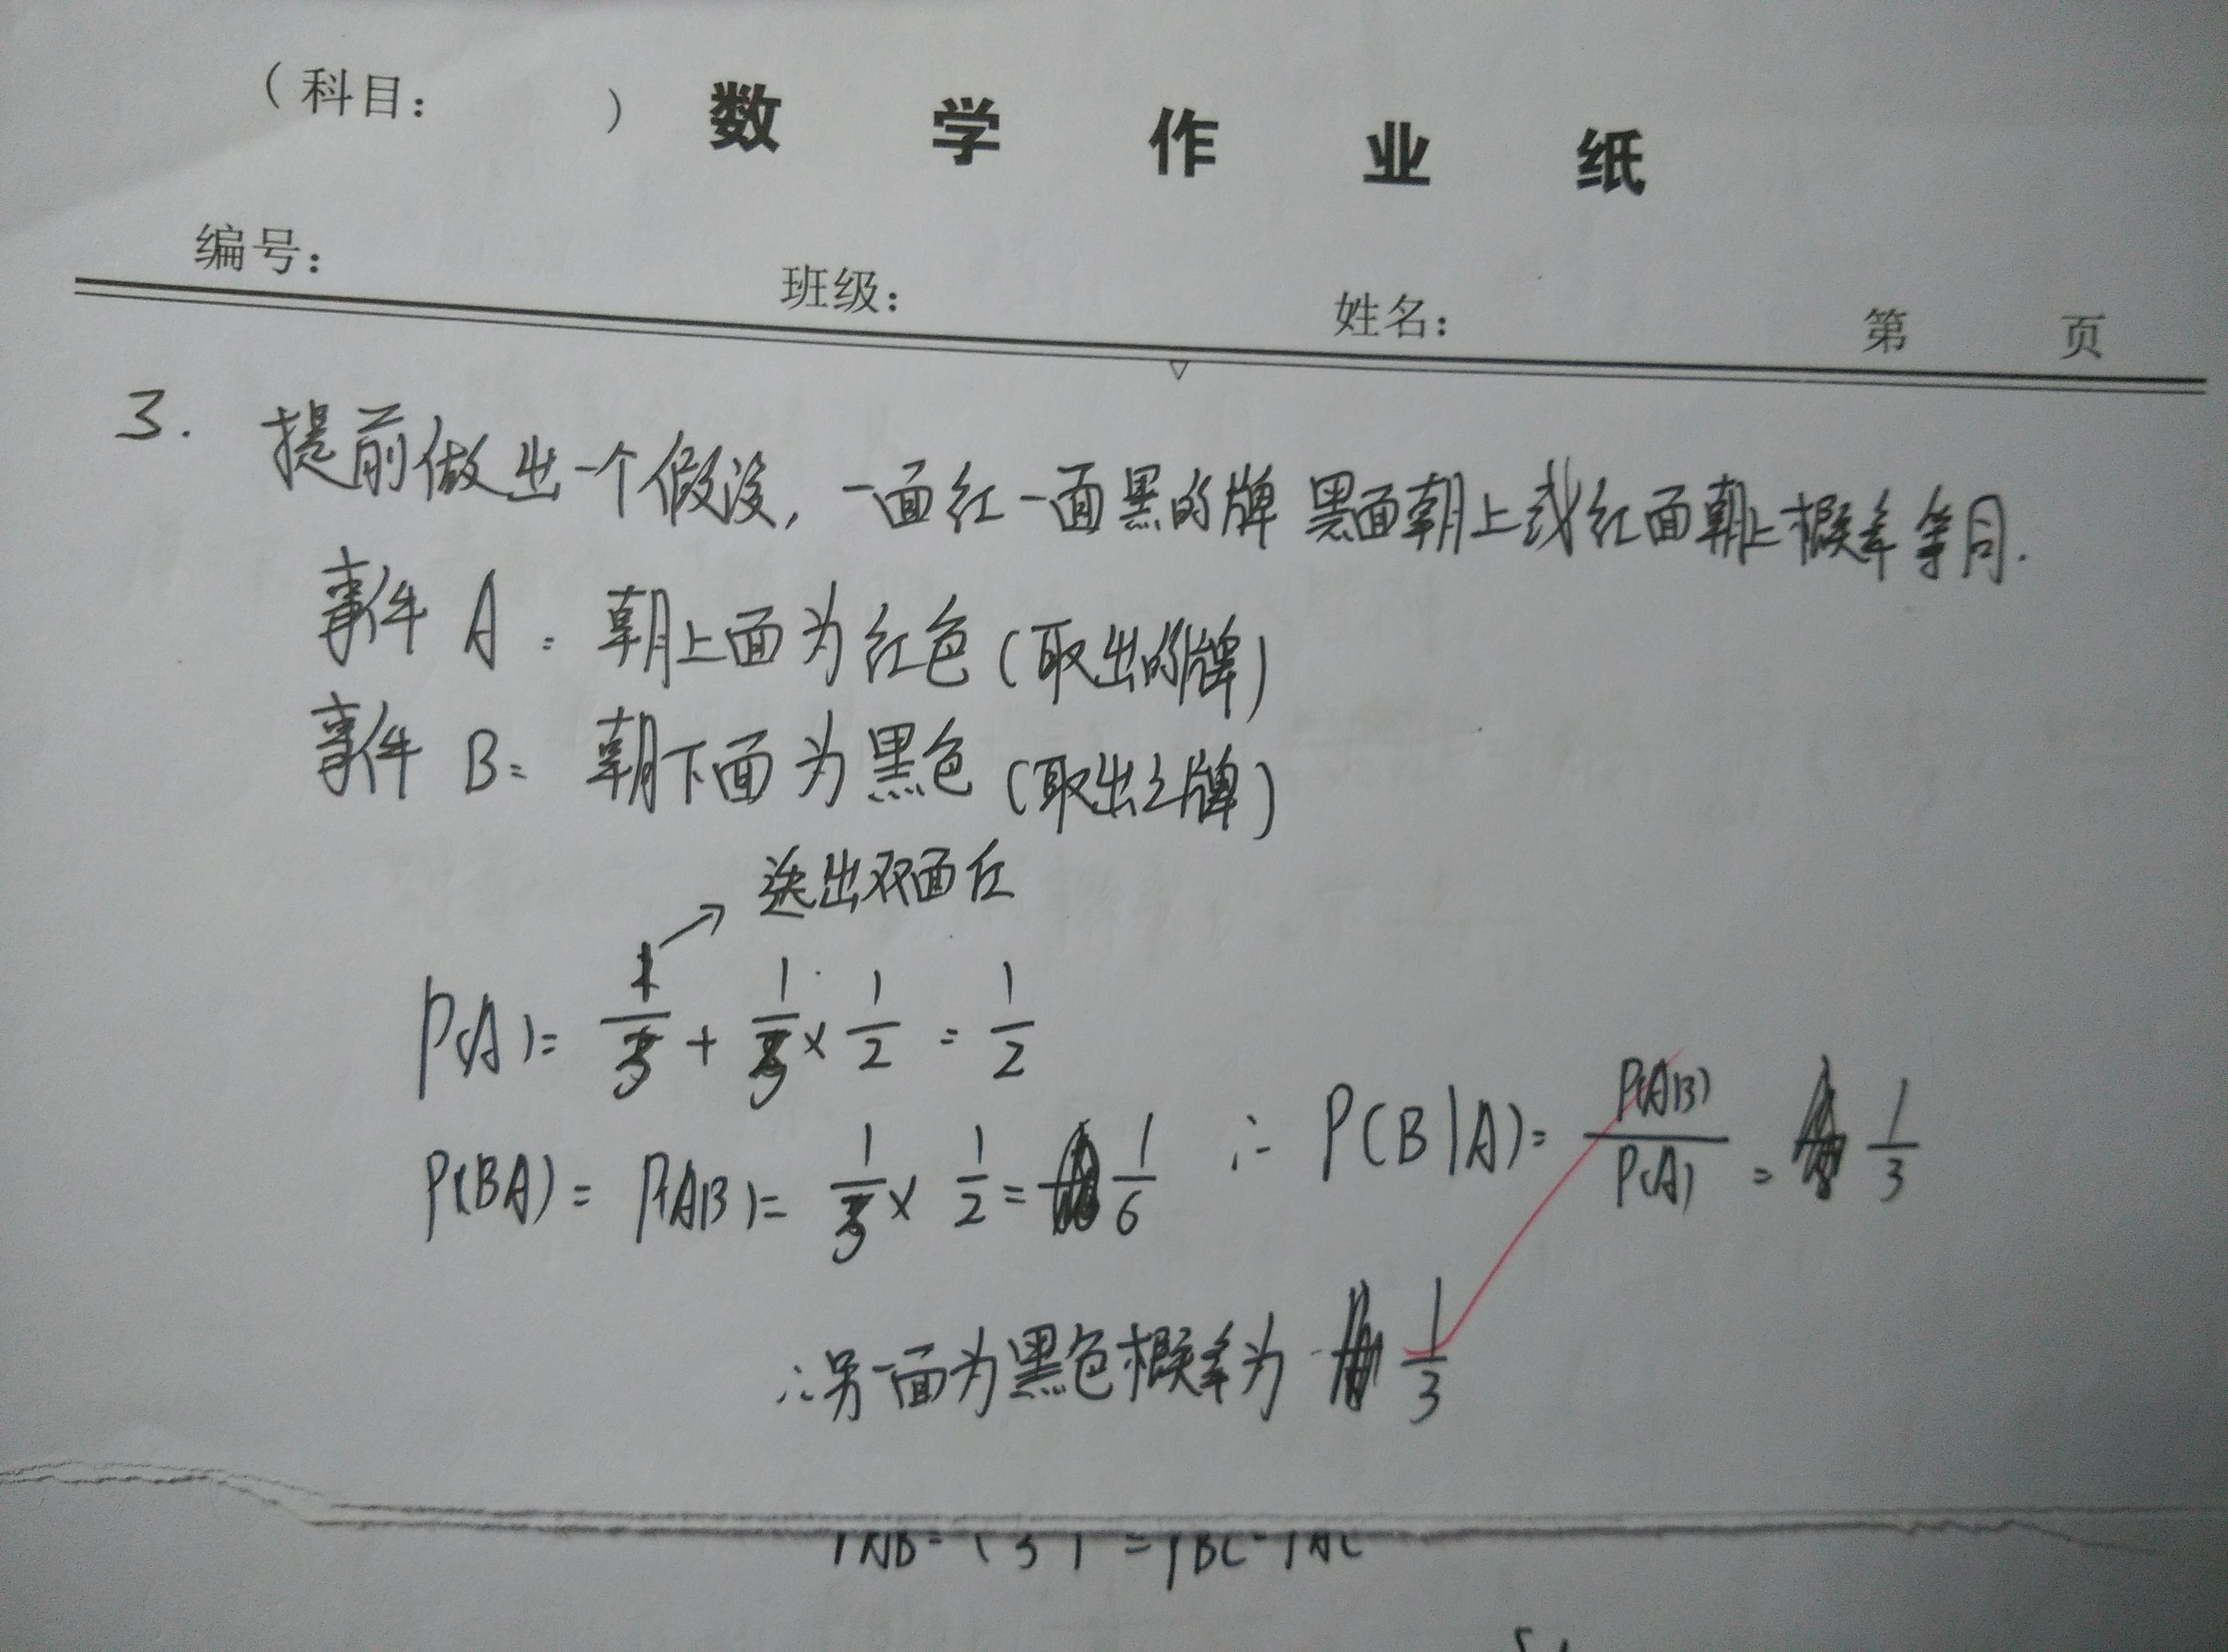 (科目: ) 数学作业纸
编号: 班级: 姓名: 第 页
3. 提前做出一个假设, 一面红一面黑的牌 黑面朝上或红面朝上概率等同.
事件 A: 朝上面为红色 (取出的牌)
事件 B: 朝下面为黑色 (取出之牌)
→ 选出双面红
P(A)= 1/3 + 1/3 × 1/2 = 1/2
P(BA) = P(AB)= 1/3 × 1/2 = 1/6 ∴ P(B|A)= P(AB)/P(A) = 1/3
∴另一面为黑色概率为 1/3